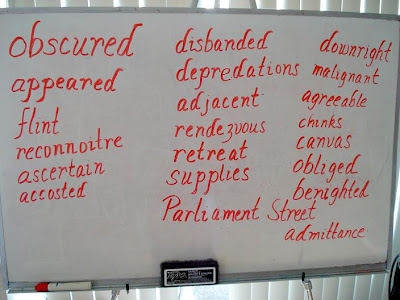 obscured
appeared
flint
reconnoitre
ascertain
accosted
disbanded
depredations
adjacent
rendezvous
retreat
supplies
Parliament Street
downright
malignant
agreeable
chinks
canvas
obliged
benighted
admittance